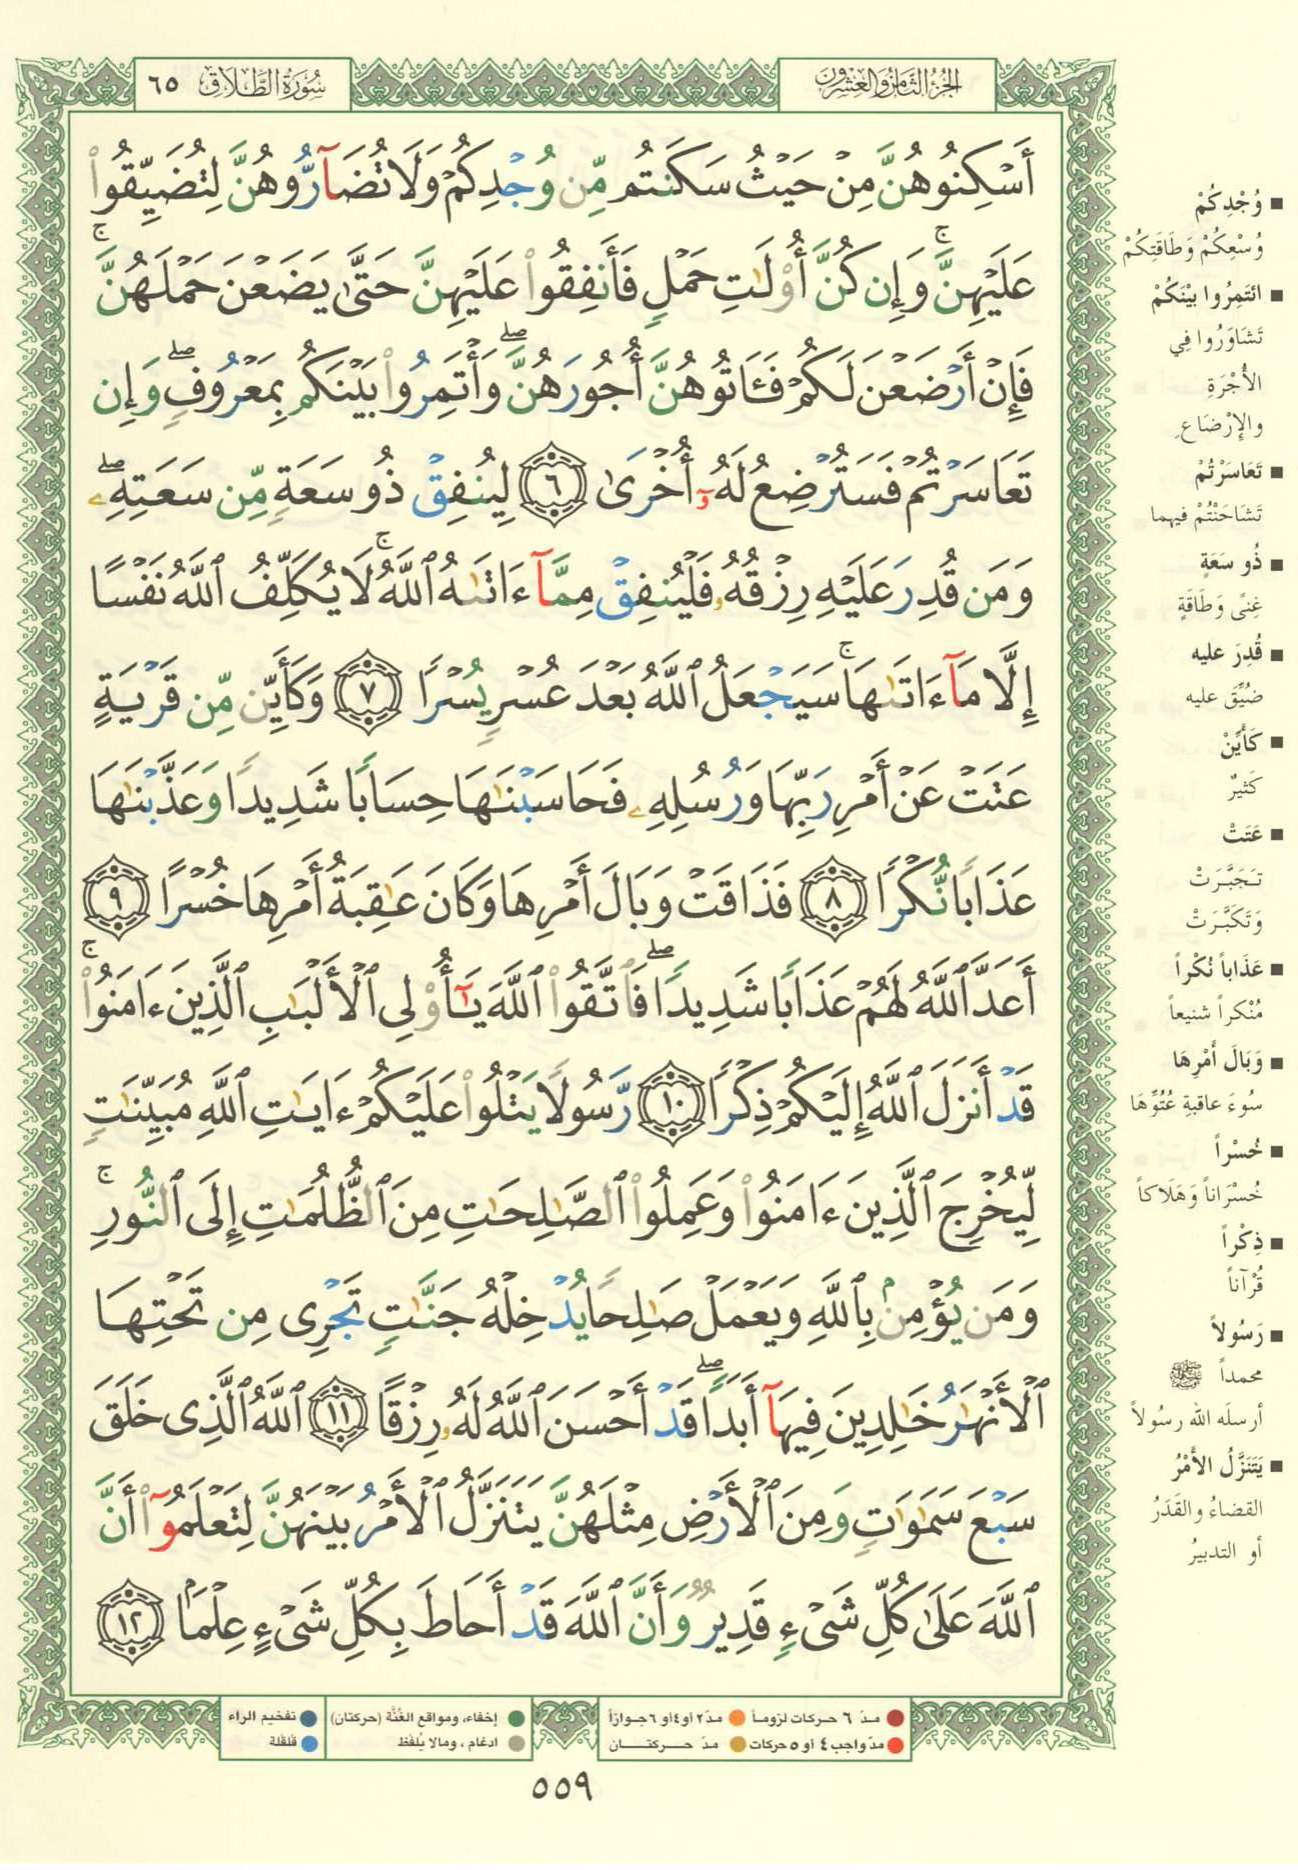 الجزء الثامن والعشرون
سورة الطلاق ٦٥
أَسْكِنُوهُنَّ مِنْ حَيْثُ سَكَنتُم مِّن وُجْدِكُمْ وَلَا تُضَآرُّوهُنَّ لِتُضَيِّقُوا۟
عَلَيْهِنَّ ۚ وَإِن كُنَّ أُو۟لَٰتِ حَمْلٍ فَأَنفِقُوا۟ عَلَيْهِنَّ حَتَّىٰ يَضَعْنَ حَمْلَهُنَّ ۚ
فَإِنْ أَرْضَعْنَ لَكُمْ فَـَٔاتُوهُنَّ أُجُورَهُنَّ ۖ وَأْتَمِرُوا۟ بَيْنَكُم بِمَعْرُوفٍ ۖ وَإِن
تَعَاسَرْتُمْ فَسَتُرْضِعُ لَهُۥٓ أُخْرَىٰ ٦ لِيُنفِقْ ذُو سَعَةٍ مِّن سَعَتِهِۦ ۖ
وَمَن قُدِرَ عَلَيْهِ رِزْقُهُۥ فَلْيُنفِقْ مِمَّآ ءَاتَىٰهُ ٱللَّهُ ۚ لَا يُكَلِّفُ ٱللَّهُ نَفْسًا
إِلَّا مَآ ءَاتَىٰهَا ۚ سَيَجْعَلُ ٱللَّهُ بَعْدَ عُسْرٍ يُسْرًا ٧ وَكَأَيِّن مِّن قَرْيَةٍ
عَتَتْ عَنْ أَمْرِ رَبِّهَا وَرُسُلِهِۦ فَحَاسَبْنَٰهَا حِسَابًا شَدِيدًا وَعَذَّبْنَٰهَا
عَذَابًا نُّكْرًا ٨ فَذَاقَتْ وَبَالَ أَمْرِهَا وَكَانَ عَٰقِبَةُ أَمْرِهَا خُسْرًا ٩
أَعَدَّ ٱللَّهُ لَهُمْ عَذَابًا شَدِيدًا ۖ فَٱتَّقُوا۟ ٱللَّهَ يَٰٓأُو۟لِى ٱلْأَلْبَٰبِ ٱلَّذِينَ ءَامَنُوا۟ ۚ
قَدْ أَنزَلَ ٱللَّهُ إِلَيْكُمْ ذِكْرًا ١٠ رَّسُولًا يَتْلُوا۟ عَلَيْكُمْ ءَايَٰتِ ٱللَّهِ مُبَيِّنَٰتٍ
لِّيُخْرِجَ ٱلَّذِينَ ءَامَنُوا۟ وَعَمِلُوا۟ ٱلصَّٰلِحَٰتِ مِنَ ٱلظُّلُمَٰتِ إِلَى ٱلنُّورِ ۚ
وَمَن يُؤْمِنۢ بِٱللَّهِ وَيَعْمَلْ صَٰلِحًا يُدْخِلْهُ جَنَّٰتٍ تَجْرِى مِن تَحْتِهَا
ٱلْأَنْهَٰرُ خَٰلِدِينَ فِيهَآ أَبَدًا ۖ قَدْ أَحْسَنَ ٱللَّهُ لَهُۥ رِزْقًا ١١ ٱللَّهُ ٱلَّذِى خَلَقَ
سَبْعَ سَمَٰوَٰتٍ وَمِنَ ٱلْأَرْضِ مِثْلَهُنَّ يَتَنَزَّلُ ٱلْأَمْرُ بَيْنَهُنَّ لِتَعْلَمُوٓا۟ أَنَّ
ٱللَّهَ عَلَىٰ كُلِّ شَىْءٍ قَدِيرٌ وَأَنَّ ٱللَّهَ قَدْ أَحَاطَ بِكُلِّ شَىْءٍ عِلْمًۢا ١٢
■ وُجْدِكُمْ
وُسْعِكُمْ وَطَاقَتِكُمْ
■ ائتَمِرُوا بَيْنَكُمْ
تَشَاوَرُوا فِي
الأُجْرَةِ
والإِرْضَاعِ
■ تَعَاسَرْتُمْ
تَشَاحَنْتُمْ فيهما
■ ذُو سَعَةٍ
غِنًى وَطَاقَةٍ
■ قُدِرَ عليه
ضُيِّقَ عليه
■ كَأَيِّنْ
كَثيرٌ
■ عَتَتْ
تَجَبَّرَتْ
وَتَكَبَّرَتْ
■ عَذَاباً نُكْراً
مُنْكراً شنيعاً
■ وَبَالَ أَمْرِهَا
سُوءَ عاقبةِ عُتُوِّهَا
■ خُسْراً
خُسْرَاناً وَهَلَاكاً
■ ذِكْراً
قُرْآناً
■ رَسُولاً
محمداً ﷺ
أرسلَه الله رسُولاً
■ يَتَنَزَّلُ الأَمْرُ
القضاءُ والقَدَرُ
أو التدبيرُ
مدّ ٦ حركات لزوماً مدّ ٢ أو ٤ أو ٦ جوازاً إخفاء، ومواقع الغُنَّة (حركتان) تفخيم الراء
مدّ واجب ٤ أو ٥ حركات مدّ حركتان ادغام، ومالا يُلفَظ قلقلة
٥٥٩